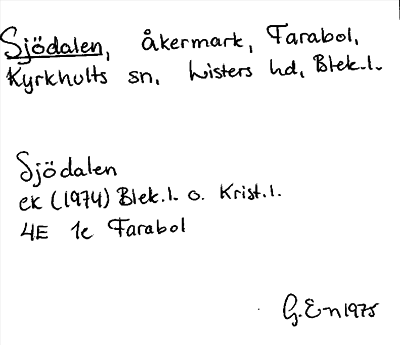 Sjödalen, åkermark, Farabol,
Kyrkhults sn, Listers hd, Blek.l.
Sjödalen
ek (1974) Blek.l. o. Krist.l.
4E 1e Farabol
G.E-n 1975